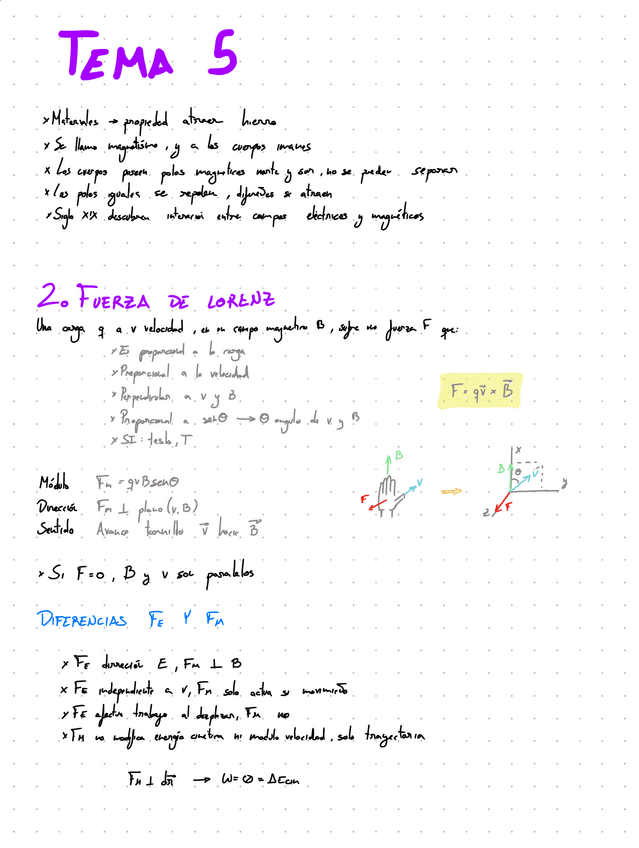 TEMA 5
× Materiales → propiedad atraer hierro
× Se llama magnetismo, y a los cuerpos imanes
× Los cuerpos poseen polos magneticos norte y sur, no se pueden separar
× Los polos iguales se repelen, diferentes se atraen
× Siglo XIX descubren interacion entre campos eléctricos y magnéticos
2. FUERZA DE LORENZ
Una carga q a v velocidad, en un campo magnetico B, sufre una fuerza F que:
× Es proporcional a la carga
× Proporcional a la velocidad
× Perpendicular a v y B
× Proporcional a senθ → θ angulo de v y B
× SI: tesla, T
F = qv⃗ × B⃗
Módulo Fm = qvBsenθ
Dirección Fm ⊥ plano (v, B)
Sentido Avance tornillo v⃗ hacia B⃗
B
F
v
x
B
θ
v
y
z
F
× Si F=0, B y v son paralelos
DIFERENCIAS FE Y FM
× FE dirección E, FM ⊥ B
× FE independiente a v, FM solo actua si movimiento
× FE efectua trabajo al desplazar, FM no
× FM no modifica energía cinética ni modulo velocidad, solo trayectoria
FM ⊥ dr⃗ → W = 0 = ΔEcin